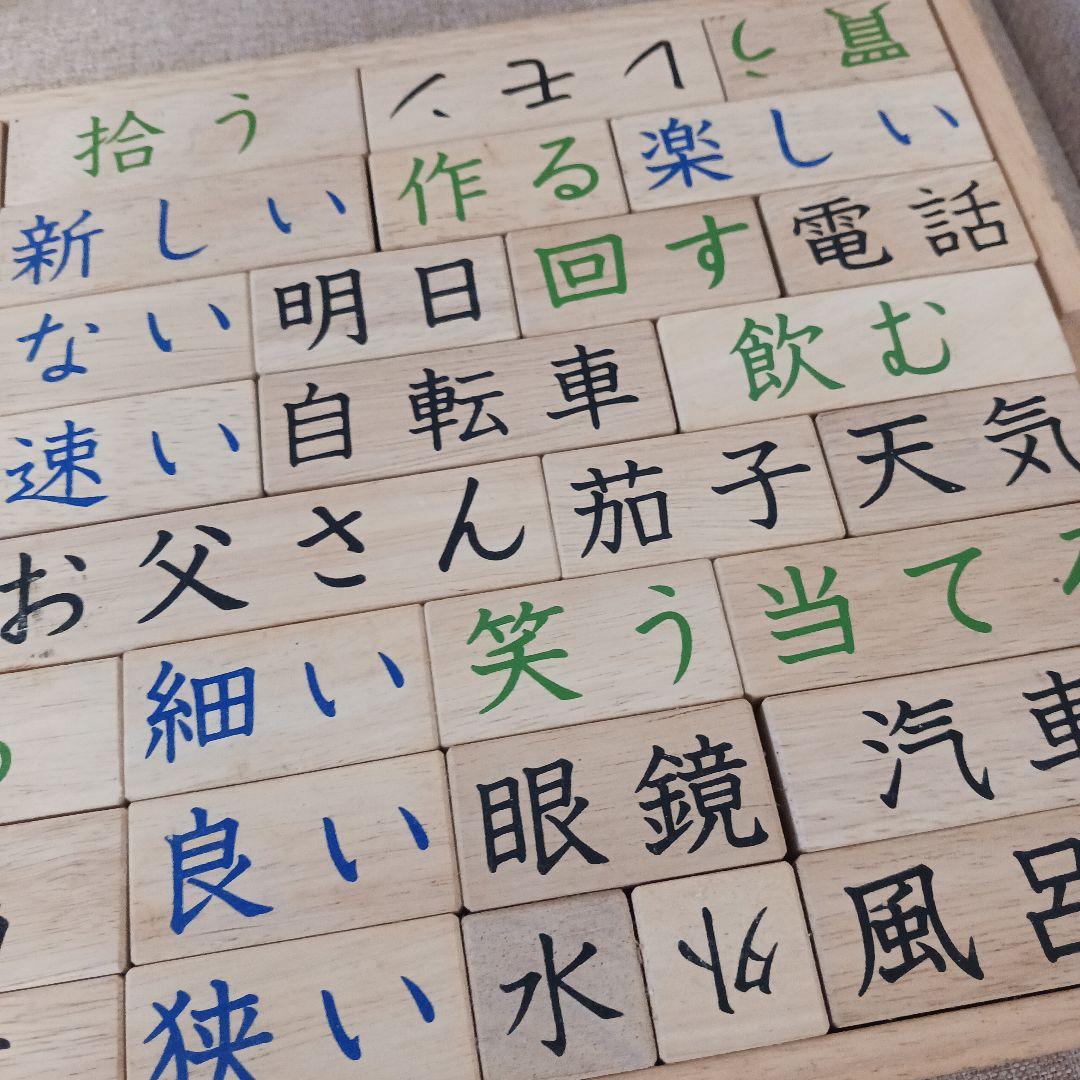 拾う レモン 買う
新しい 作る 楽しい
ない 明日 回す 電話
速い 自転車 飲む
お父さん 茄子 天気
細い 笑う 当て
良い 眼鏡 汽車
狭い 水 外 風呂